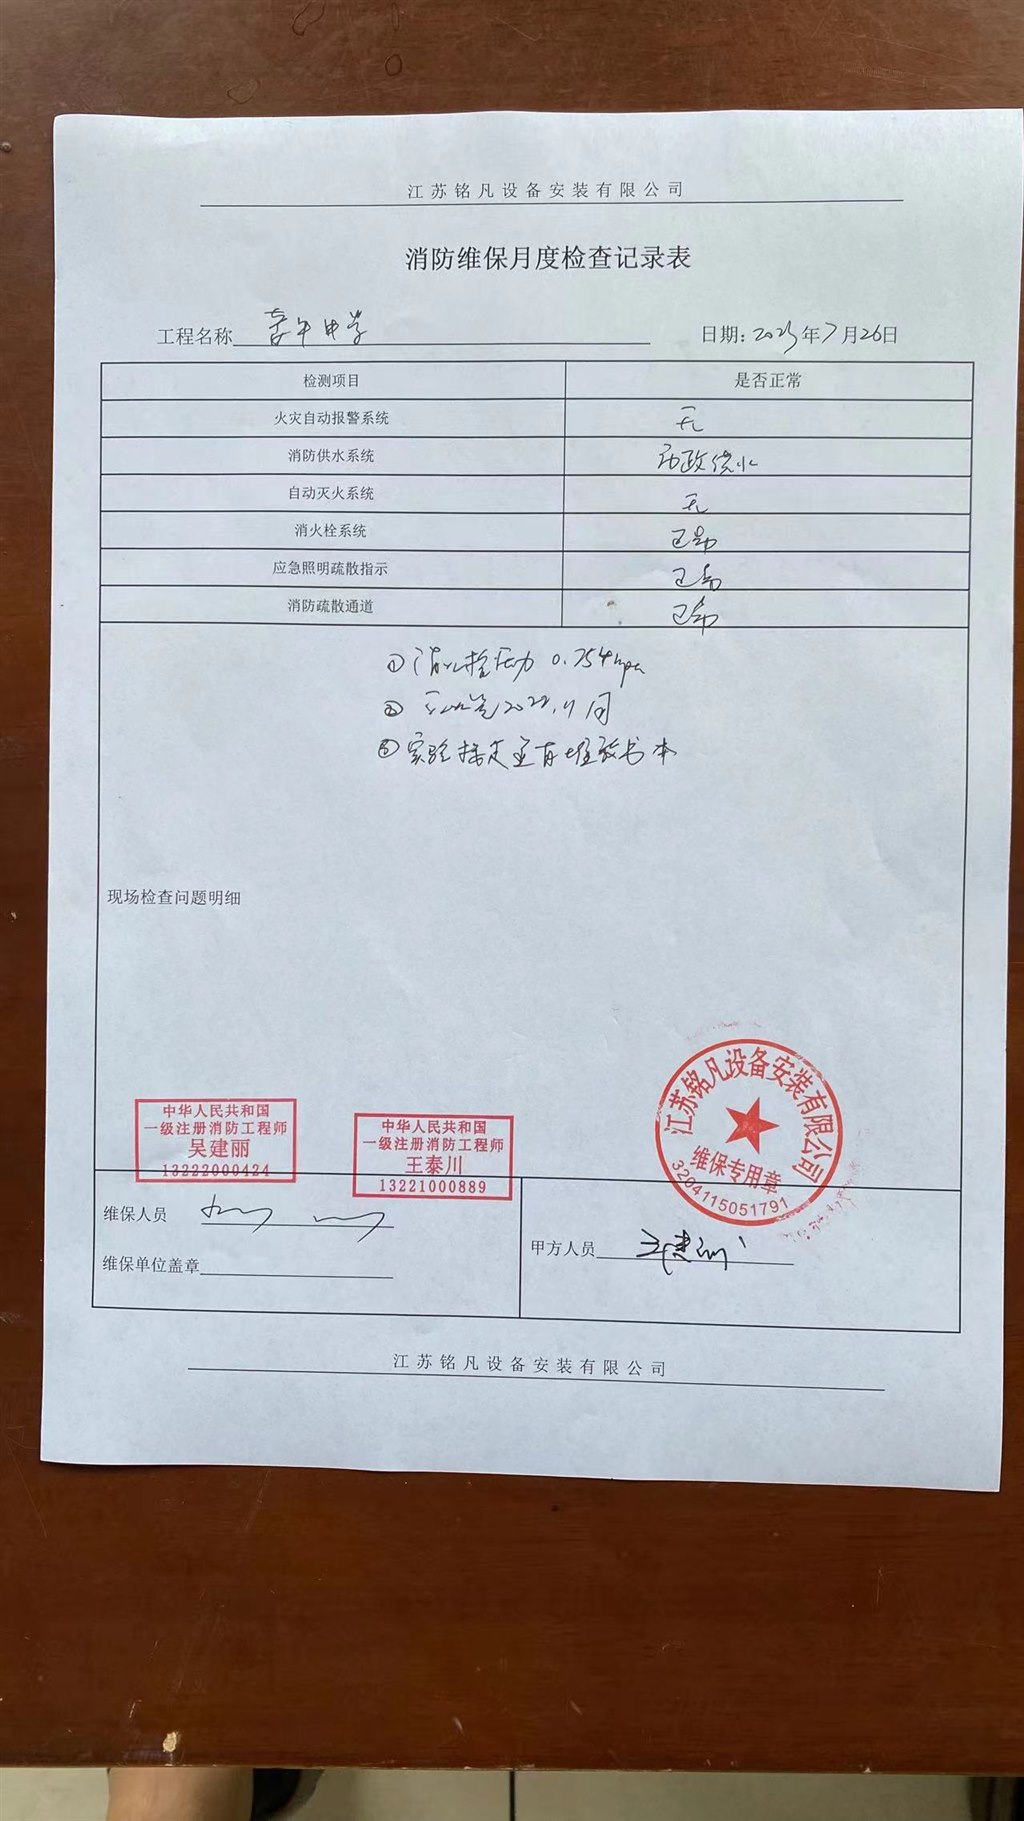 江苏铭凡设备安装有限公司
消防维保月度检查记录表
工程名称 中学 日期: 2023年7月26日
检测项目 是否正常
火灾自动报警系统 无
消防供水系统 市政供水
自动灭火系统 无
消火栓系统 正常
应急照明疏散指示 正常
消防疏散通道 正常
① 消火栓压力 0.75
② 2022.11
③ 实验楼走 有堆放书本
现场检查问题明细
中华人民共和国
一级注册消防工程师
吴建丽
13222000424
中华人民共和国
一级注册消防工程师
王泰川
13221000889
江苏铭凡设备安装有限公司
维保专用章
3204115051791
维保人员
维保单位盖章
甲方人员
江苏铭凡设备安装有限公司